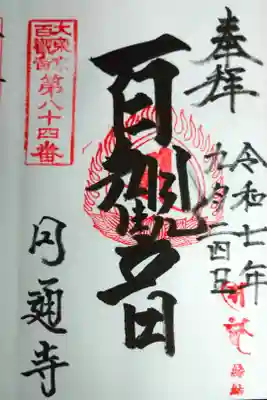 奉拝
令和七年
九月二四日
百観音
大東京
百観音
第八十四番
円通寺